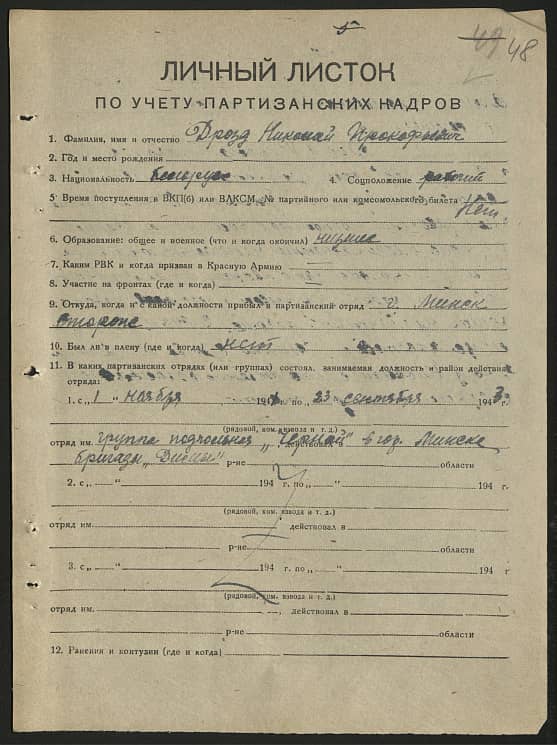 49 48
ЛИЧНЫЙ ЛИСТОК
ПО УЧЕТУ ПАРТИЗАНСКИХ КАДРОВ
1. Фамилия, имя и отчество Дрозд Николай Прокофьевич
2. Год и место рождения
3. Национальность белорус 4. Соцположение рабочий
5. Время поступления в ВКП(б) или ВЛКСМ, № партийного или комсомольского билета Нет
6. Образование: общее и военное (что и когда окончил) низшее
7. Каким РВК и когда призван в Красную Армию
8. Участие на фронтах (где и когда)
9. Откуда, когда и с какой должности прибыл в партизанский отряд г. Минск
сторож
10. Был ли в плену (где и когда) нет
11. В каких партизанских отрядах (или группах) состоял, занимаемая должность и район действия
отряда:
1. с „1" ноября 194 г. по „23 сентября 1943 г.
(рядовой, ком. взвода и т. д.)
отряд им. группа подпольная „Черной" действовал в в гор. Минске
бригады „Димы" р-не области
2. с „ " 194 г. по „ " 194 г.
(рядовой, ком. взвода и т. д.)
отряд им. действовал в
р-не области
3. с „ " 194 г. по „ " 194 г.
(рядовой, ком. взвода и т. д.)
отряд им. , действовал в
р-не области
12. Ранения и контузии (где и когда)